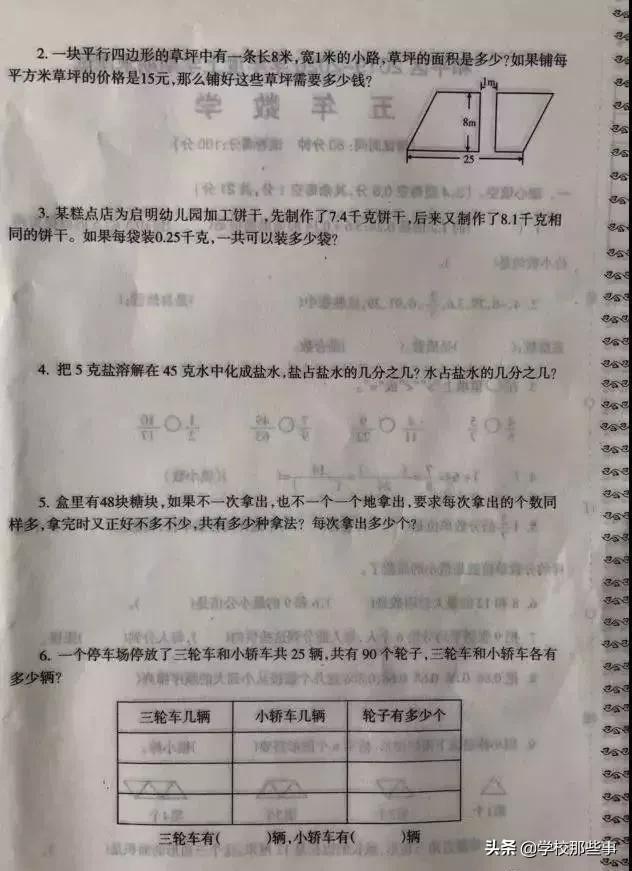 2. 一块平行四边形的草坪中有一条长8米,宽1米的小路,草坪的面积是多少?如果铺每
平方米草坪的价格是15元,那么铺好这些草坪需要多少钱?
1m
8m
25
3. 某糕点店为启明幼儿园加工饼干,先制作了7.4千克饼干,后来又制作了8.1千克相
同的饼干。如果每袋装0.25千克,一共可以装多少袋?
4. 把 5 克盐溶解在 45 克水中化成盐水,盐占盐水的几分之几? 水占盐水的几分之几?
5. 盒里有48块糖块,如果不一次拿出,也不一个一个地拿出,要求每次拿出的个数同
样多,拿完时又正好不多不少,共有多少种拿法? 每次拿出多少个?
6. 一个停车场停放了三轮车和小轿车共 25 辆,共有 90 个轮子,三轮车和小轿车各有
多少辆?
三轮车几辆 小轿车几辆 轮子有多少个
三轮车有( )辆,小轿车有( )辆
头条 @学校那些事